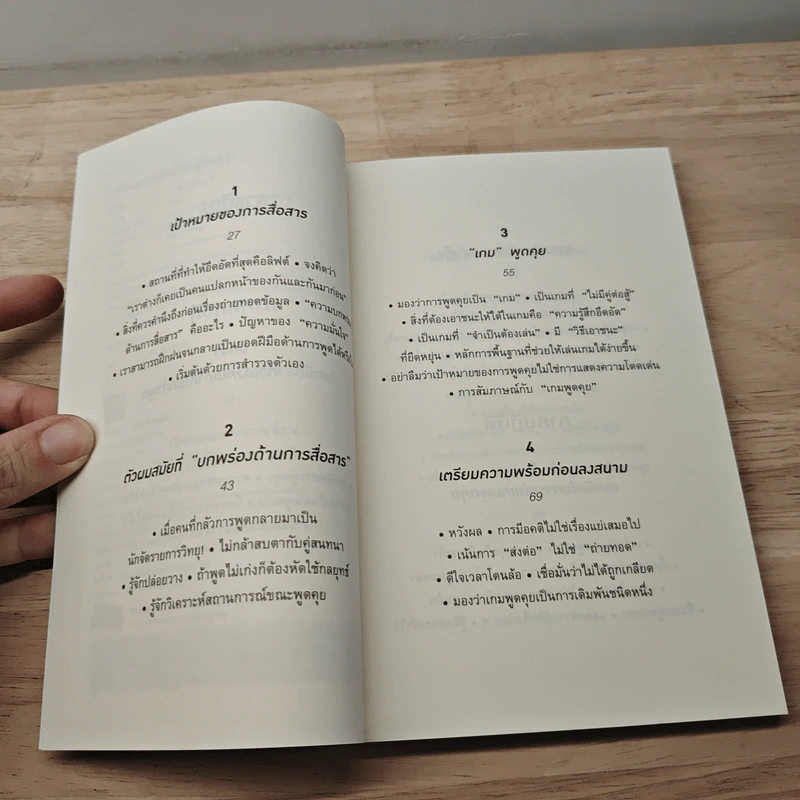 1
เป้าหมายของการสื่อสาร
27
• สถานที่ที่ทำให้อึดอัดที่สุดคือลิฟต์ • จงคิดว่า
"เราต่างก็เคยเป็นคนแปลกหน้าของกันและกันมาก่อน"
• สิ่งที่ควรคำนึงถึงก่อนเรื่องถ่ายทอดข้อมูล • "ความบกพร่อง
ด้านการสื่อสาร" คืออะไร • ปัญหาของ "ความมั่นใจ"
• เราสามารถฝึกฝนจนกลายเป็นยอดฝีมือด้านการพูดได้
• เริ่มต้นด้วยการสำรวจตัวเอง
2
ตัวผมสมัยที่ "บกพร่องด้านการสื่อสาร"
43
• เมื่อคนที่กลัวการพูดกลายมาเป็น
นักจัดรายการวิทยุ! • ไม่กล้าสบตากับคู่สนทนา
• รู้จักปล่อยวาง • ถ้าพูดไม่เก่งก็ต้องหัดใช้กลยุทธ์
• รู้จักวิเคราะห์สถานการณ์ขณะพูดคุย
3
"เกม" พูดคุย
55
• มองว่าการพูดคุยเป็น "เกม" • เป็นเกมที่ "ไม่มีคู่ต่อสู้"
• สิ่งที่ต้องเอาชนะให้ได้ในเกมคือ "ความรู้สึกอึดอัด"
• เป็นเกมที่ "จำเป็นต้องเล่น" • มี "วิธีเอาชนะ"
ที่ยืดหยุ่น • หลักการพื้นฐานที่ช่วยให้เล่นเกมได้ง่ายขึ้น
• อย่าลืมว่าเป้าหมายของการพูดคุยไม่ใช่การแสดงความโดดเด่น
• การสัมภาษณ์กับ "เกมพูดคุย"
4
เตรียมความพร้อมก่อนลงสนาม
69
• หวังผล • การมีอคติไม่ใช่เรื่องแย่เสมอไป
• เน้นการ "ส่งต่อ" ไม่ใช่ "ถ่ายทอด"
• ดีใจเวลาโดนล้อ • เชื่อมั่นว่าไม่ได้ถูกเกลียด
• มองว่าเกมพูดคุยเป็นการเดิมพันชนิดหนึ่ง